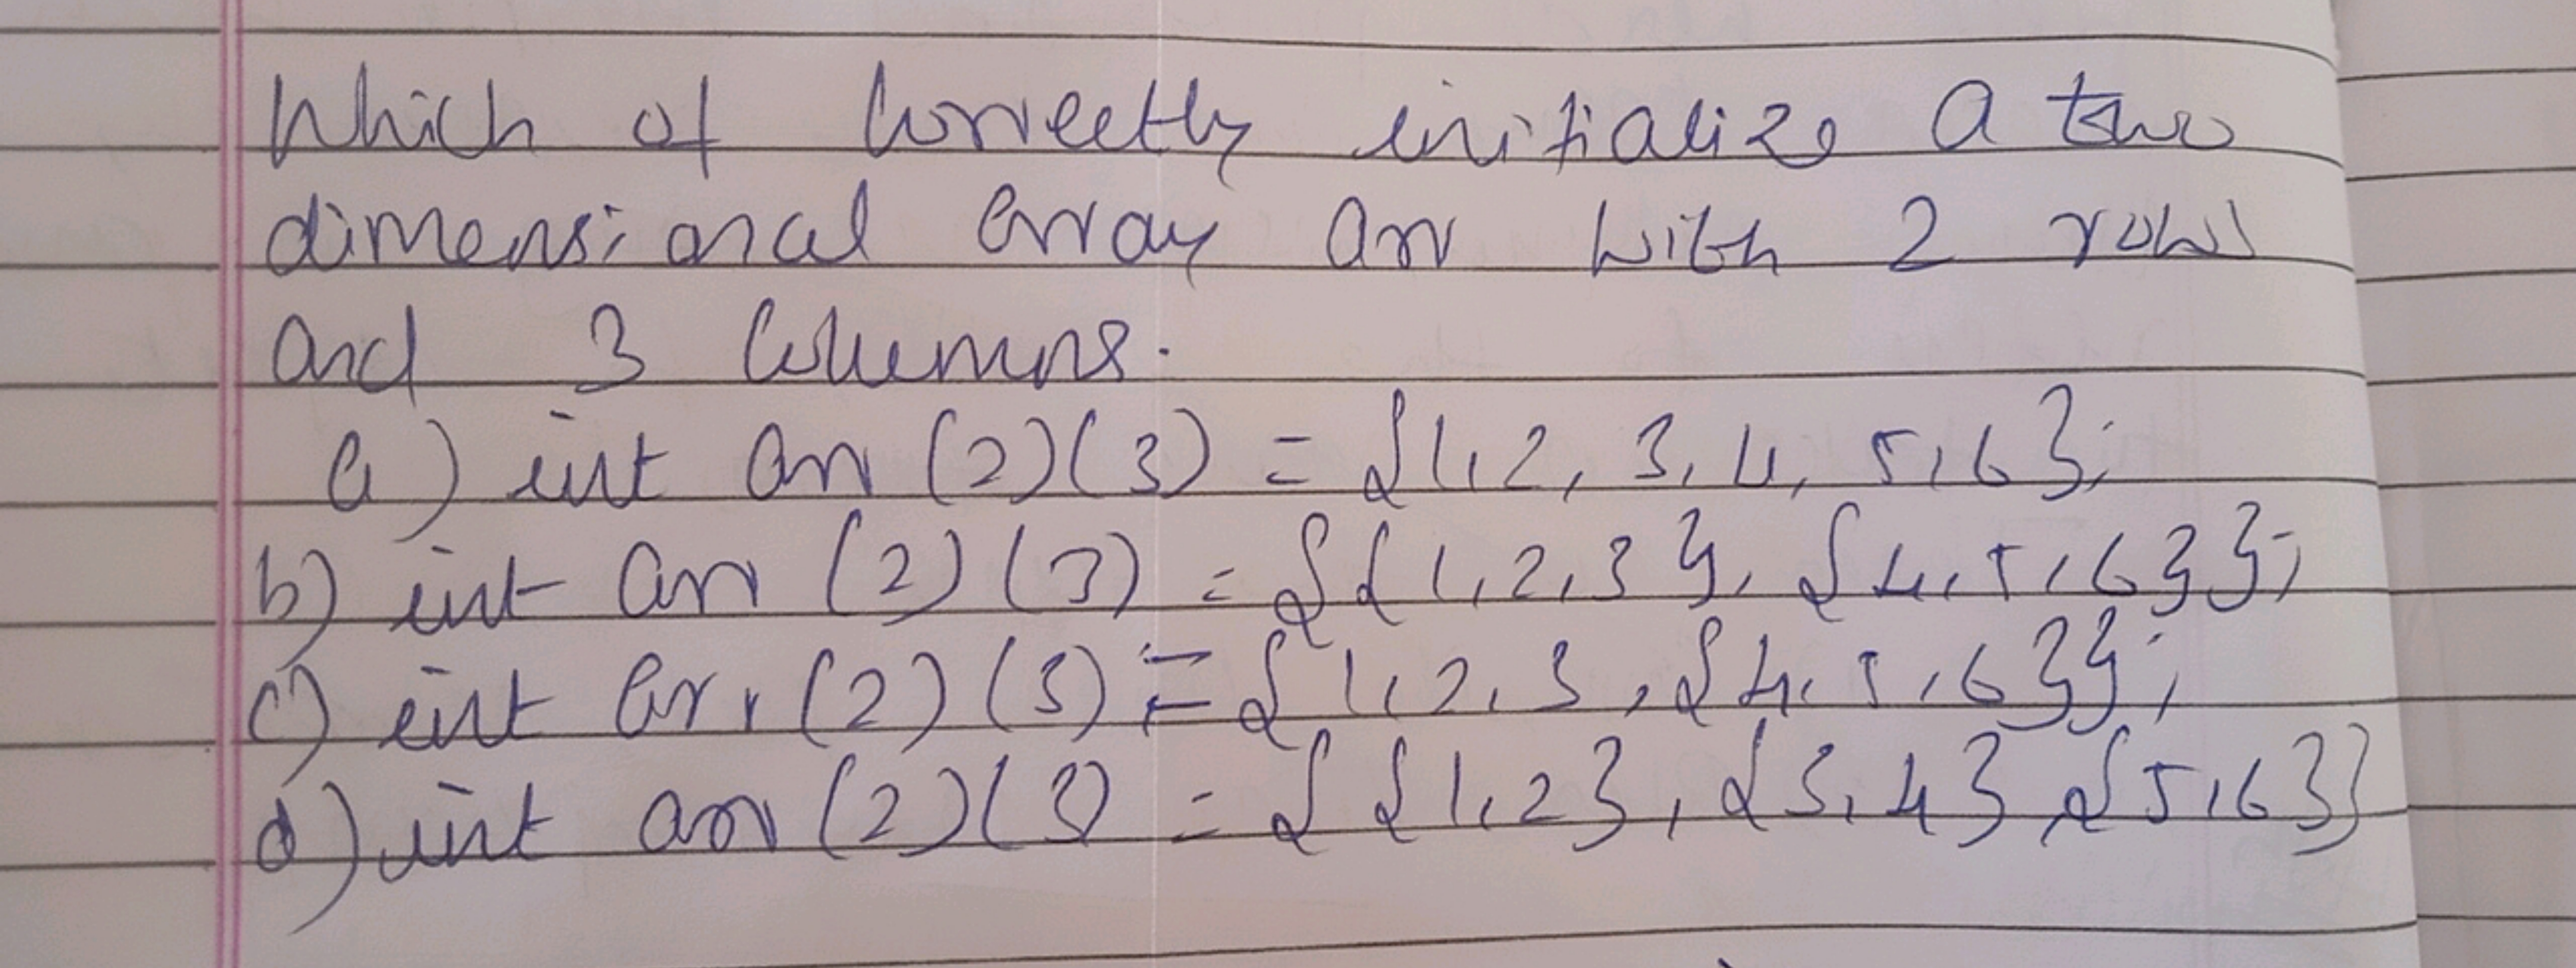 Which of correctly initialize a two
dimensional array arr with 2 rows
and 3 columns.
a) int arr (2)(3) = {1,2, 3,4, 5,6};
b) int arr (2)(3) = {{1,2,3}, {4,5,6}};
c) int arr (2)(3) = {1,2,3,{4,5,6}};
d) int arr (2)(3) = {{1,2},{3,4},{5,6}}